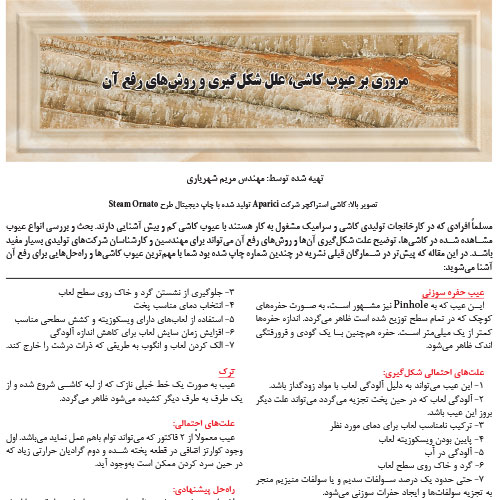 مروری بر عیوب کاشی، علل شکل‌گیری و روش‌های رفع آن
تهیه شده توسط: مهندس مریم شهریاری
تصویر بالا: کاشی استراکچر شرکت Aparici تولید شده با چاپ دیجیتال طرح Steam Ornato
مسلماً افرادی که در کارخانجات تولیدی کاشی و سرامیک مشغول به کار هستند با عیوب کاشی کم و بیش آشنایی دارند. بحث و بررسی انواع عیوب
مشـاهده شـده در کاشی‌ها، توضیح علت شکل‌گیری آن‌ها و روش‌های رفع آن می‌تواند برای مهندسین و کارشناسان شرکت‌های تولیدی بسیار مفید
باشـد. در این مقاله که پیش‌تر در شـمارگان قبلی نشریه در چندین شماره چاپ شده بود شما با مهم‌ترین عیوب کاشی‌ها و راه‌حل‌هایی برای رفع آن
آشنا می‌شوید:
عیب حفره سوزنی
ایـن عیب که به Pinhole نیز مشـهور اسـت، به صـورت حفره‌های
کوچک که در تمام سطح توزیع شده است ظاهر می‌گردد. اندازه حفره‌ها
کمتر از یک میلی‌متر اسـت. حفره هم‌چنین بـا یک گودی و فرورفتگی
اندک ظاهر می‌شود.
علت‌های احتمالی شکل‌گیری:
۱- این عیب می‌تواند به دلیل آلودگی لعاب با مواد زودگداز باشد.
۲- آلودگی لعاب که در حین پخت تجزیه می‌گردد می‌تواند علت دیگر
بروز این عیب باشد.
۳- ترکیب نامناسب لعاب برای دمای مورد نظر
۴- پایین بودن ویسکوزیته لعاب
۵- آلودگی در آب
۶- گرد و خاک روی سطح لعاب
۷- حتی حدود یک درصد سـولفات سدیم و یا سولفات منیزیم منجر
به تجزیه سولفات‌ها و ایجاد حفرات سوزنی می‌شود.
۳- جلوگیری از نشستن گرد و خاک روی سطح لعاب
۴- انتخاب دمای مناسب پخت
۵- استفاده از لعاب‌های دارای ویسکوزیته و کشش سطحی مناسب
۶- افزایش زمان سایش لعاب برای کاهش اندازه آلودگی
۷- الک کردن لعاب و انگوب به طریقی که ذرات درشت را خارج کند.
ترک
عیب به صورت یک خط خیلی نازک که از لبه کاشـی شروع شده و از
یک طرف به طرف دیگر کشیده می‌شود ظاهر می‌گردد.
علت‌های احتمالی:
عیب معمولاً از ۲ فاکتور که می‌تواند توام باهم عمل نماید می‌باشد. اول
وجود کوارتز اضافی در قطعه پخته شـده و دوم گرادیان حرارتی زیاد که
در حین سرد کردن ممکن است به‌وجود آید.
راه‌حل پیشنهادی: